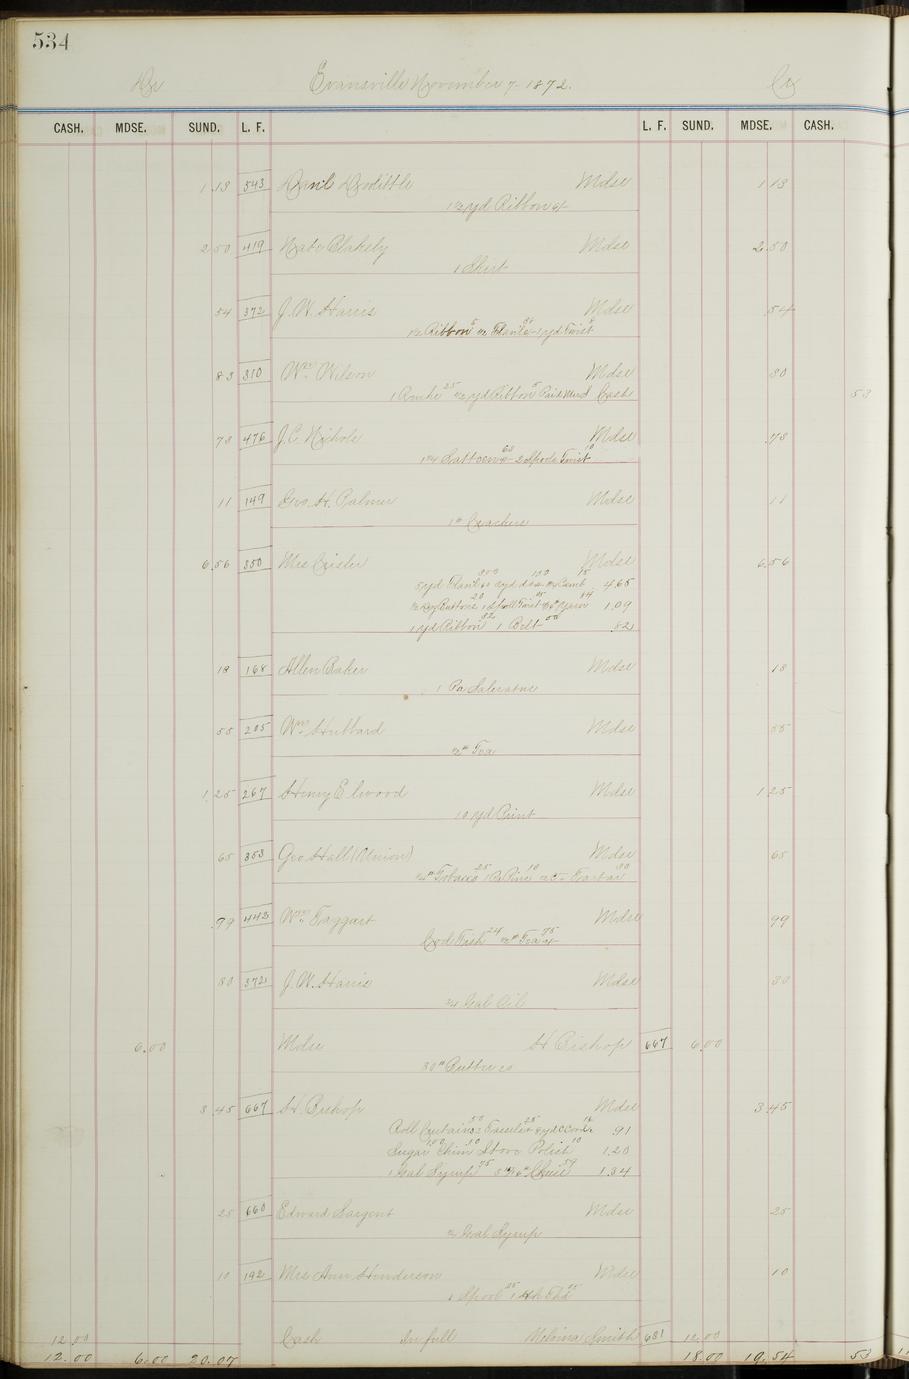 534
Dr Evansville November 7 1872. Cr
CASH. MDSE. SUND. L. F. L. F. SUND. MDSE. CASH.
1 13 543 Danl Doolittle Mdse 1 13
1 1/2 yd Ribbon
2 50 419 Nate Blakely Mdse 2.50
1 Shirt
54 372 J. W. Harris Mdse 54
Ribbon 1 yd Twist
83 310 Wm Wilson Mdse 30
1 25 1/2 yd Ribbon 5 Paid Mdse Cash 53
78 476 J. C. Nichols Mdse 78
60 2 Spools Twist 10
11 149 Geo. H. Palmer Mdse 11
1# Crackers
6.56 350 Mrs Crisler Mdse 6.56
5 yd 300 150 Comb 15 4.65
Buttons 20 1 Spool Twist Yarn 84 1.09
1 yd Ribbon 32 1 Belt 50 .82
18 168 Allen Baker Mdse 18
1 Pa Saleratus
55 205 Wm Hubbard Mdse 55
1/2# Tea
1.25 267 Henry Elwood Mdse 1.25
10 yd Print
65 353 Geo. Hall (Union) Mdse 65
Tobacco 25 10 Tartar 30
.99 443 Wm Taggart Mdse 99
Cod Fish 24 Tea 75
30 372 J. W. Harris Mdse 30
3/4 Gal Oil
6.00 Mdse H Bishop 667 6.00
30# Butter 20
3.45 667 H. Bishop Mdse 3.45
Roll Curtains 50 Tassels 25 Cord 16 91
Sugar 100 Chim 10 Stove Polish 10 1.20
1 Gal Syrup 75 Cheese 59 1.34
25 660 Edward Sargent Mdse 25
Gal Syrup
10 192 Mrs Ann Henderson Mdse 10
1 Spool
12.00 Cash In full Melvina Smith 681 12.00
12.00 6.00 20.07 18.00 19.54 53